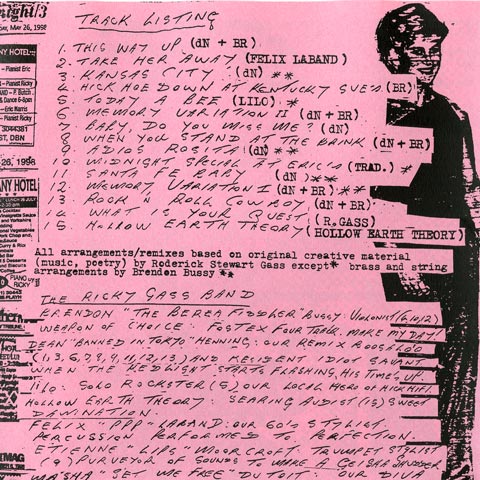 night/3
DAY, MAY 26, 1998
ANY HOTEL
- Pianist Eric
- Pianist Ricky
AND - P. Butch
& Dance 6-8pm
- Eric Harris
- Pianist Ricky
3044381
ST, DBN
26, 1998
ANY HOTEL
TRACK LISTING
1. THIS WAY UP (dN + BR)
2. TAKE HER AWAY (FELIX LABAND)
3. KANSAS CITY (dN) **
4. HICK HOE DOWN AT KENTUCKY SUE'S (BR)
5. TODAY A BEE (LILO) *
6. MEMORY VARIATION II (dN + BR)
7. BABY, DO YOU MISS ME? (dN)
8. WHEN YOU STAND AT THE BRINK (dN + BR)
9. ADIOS ROSITA (dN) **
10. MIDNIGHT SPECIAL AT ERIC'S (TRAD.) *
11. SANTA FE BABY (dN) **
12. MEMORY VARIATION I (dN + BR) **
13. ROCK N ROLL COWBOY (dN + BR)
14. WHAT IS YOUR QUEST (R.GASS)
15. HOLLOW EARTH THEORY (HOLLOW EARTH THEORY)
All arrangements/remixes based on original creative material
(music, poetry) by Roderick Stewart Gass except* brass and string
arrangements by Brendon Bussy **
THE RICKY GASS BAND
BRENDON "THE BEREA FIDDLER" BUSSY: VIOLONIST (6,10,12)
WEAPON OF CHOICE: FOSTEX FOUR TRACK. MAKE MY DAY!
DEAN "BANNED IN TOKYO" HENNING: OUR REMIX
(1,3,6,7,8,9,11,12,13) AND RESIDENT IDIOT SAVANT
WHEN THE REDLIGHT STARTS FLASHING, HIS TIME'S UP.
LILO: SOLO ROCKSTER (5) OUR LOCAL HERO OF HICK HIFI.
HOLLOW EARTH THEORY: SEARING AUDIST (15) SWEET
DAWINATION.
FELIX "PPP" LABAND: OUR 60'S STYLIST
PERCUSSION PERFORMED TO PERFECTION
ETIENNE "LIPS" MOORCROFT. TRUMPET STYLIST
(9) PURVEYOR OF SOUNDS TO MAKE A GEISHA SHUDDER
MASHA "SET ME FREE" DU TOIT: OUR DIVA